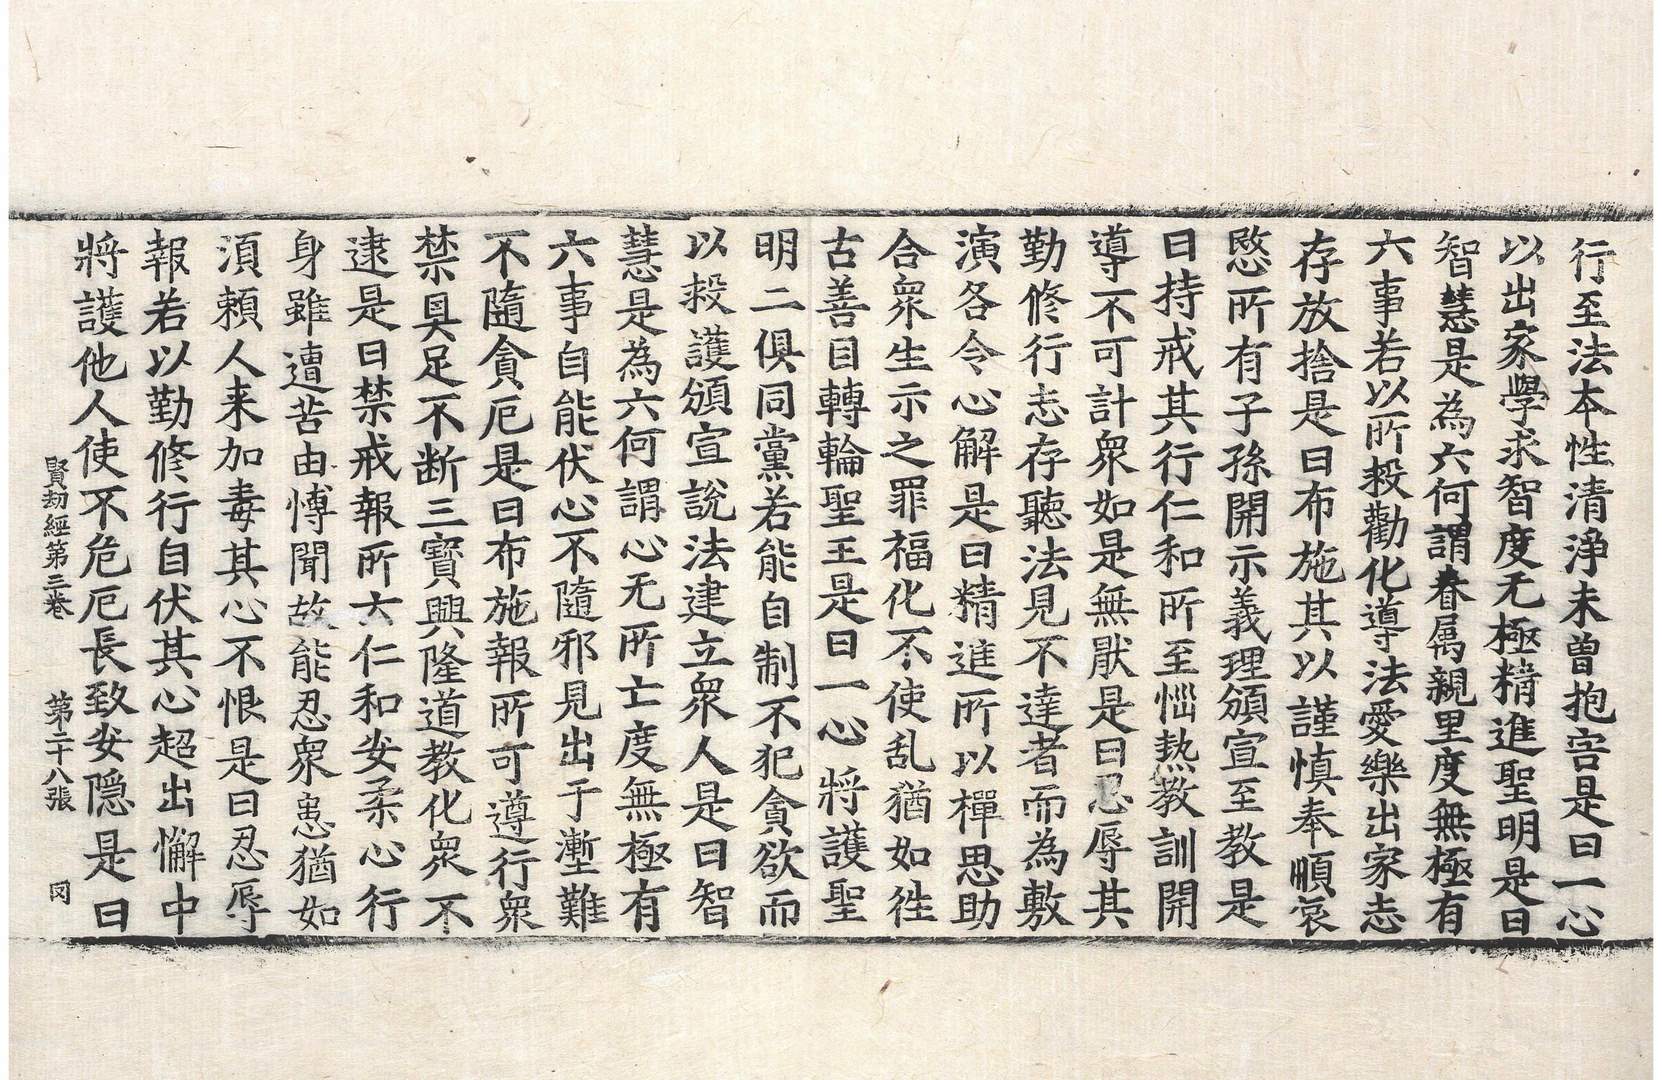 行至法本性清淨未曾抱害是曰一心
以出家學求智度无極精進聖明是曰
智慧是為六何謂眷属親里度無極有
六事若以所殺勸化導法愛樂出家志
存放捨是曰布施其以謹慎奉順哀
愍所有子孫開示義理頒宣至教是
曰持戒其行仁和所至惱熱教訓開
導不可計衆如是無猒是曰忍辱其
勤修行志存聽法見不達者而為敷
演各令心解是曰精進所以禪思助
合衆生示之罪福化不使乱猶如徃
古善目轉輪聖王是曰一心將護聖
明二俱同黨若能自制不犯貪欲而
以救護頒宣說法建立衆人是曰智
慧是為六何謂心无所亡度無極有
六事自能伏心不隨邪見出于壍難
不隨貪厄是曰布施報所可遵行衆
禁具足不断三寶興隆道教化衆不
逮是曰禁戒報所六仁和安柔心行
身雖遭苦由愽聞故能忍衆患猶如
湏賴人来加毒其心不恨是曰忍辱
報若以勤修行自伏其心超出懈中
將護他人使不危厄長致安隱是曰
賢劫經第三卷 第二十八張